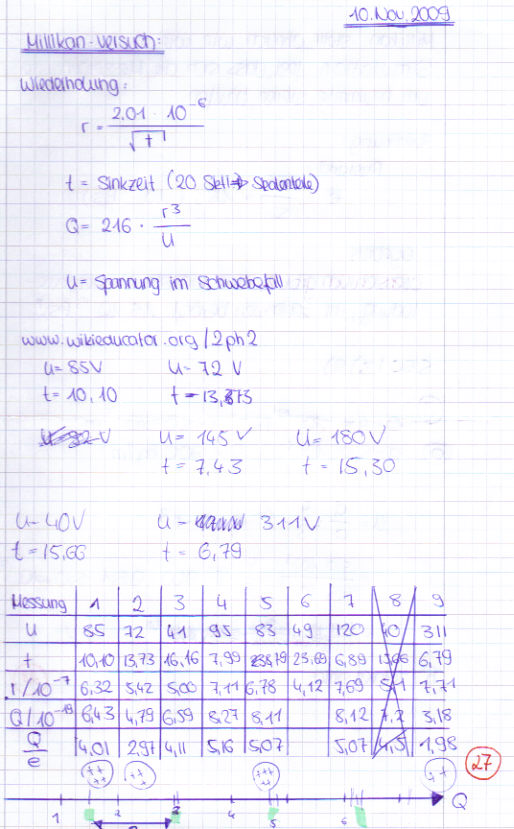 10. Nov. 2009
Millikan-Versuch:
Wiederholung:
r = 2,01 · 10⁻⁶ / √t
t = Sinkzeit (20 Skll → Skalenteile)
Q = 216 · r³ / U
U = Spannung im Schwebefall
www.wikieducator.org/2ph2
U = 85V U = 72 V
t = 10,10 t = 13,73
U = 145 V U = 180V
t = 7,43 t = 15,30
U = 40V U = 311V
t = 15,66 t = 6,79
Messung 1 2 3 4 5 6 7 8 9
U 85 72 41 95 83 49 120 40 311
t 10,10 13,73 16,16 7,99 8,79 23,69 6,89 15,66 6,79
r/10⁻⁷ 6,32 5,42 5,00 7,11 6,78 4,12 7,69 5,1 7,71
Q/10⁻¹⁹ 6,43 4,79 6,59 8,27 8,11 8,12 7,2 3,18
Q/e 4,01 2,97 4,11 5,16 5,07 5,07 4,5 1,98
27
++ ++ ++ + +++ ++ + +
Q
1 2 3 4 5 6